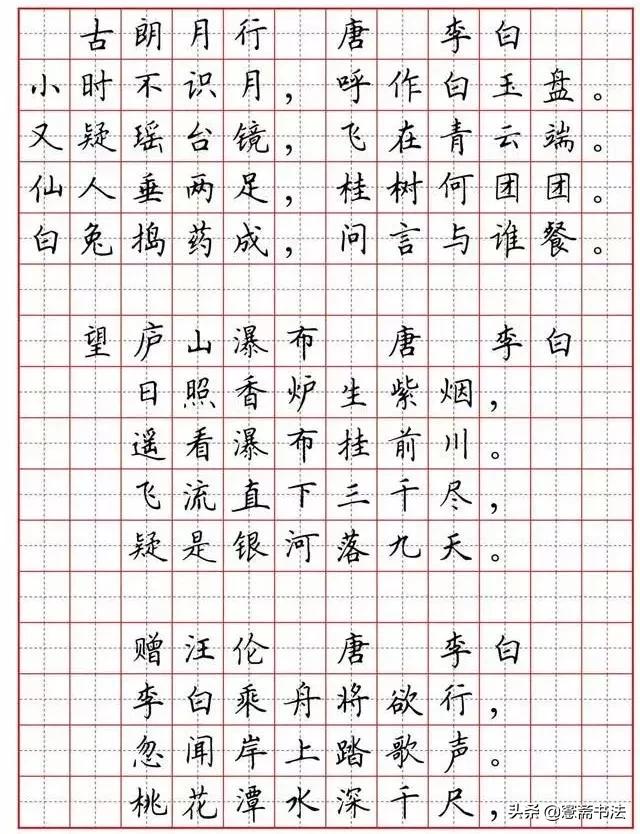 古朗月行 唐 李白
小时不识月，呼作白玉盘。
又疑瑶台镜，飞在青云端。
仙人垂两足，桂树何团团。
白兔捣药成，问言与谁餐。
望庐山瀑布 唐 李白
日照香炉生紫烟，
遥看瀑布挂前川。
飞流直下三千尽，
疑是银河落九天。
赠汪伦 唐 李白
李白乘舟将欲行，
忽闻岸上踏歌声。
桃花潭水深千尺，
头条@騫斋书法